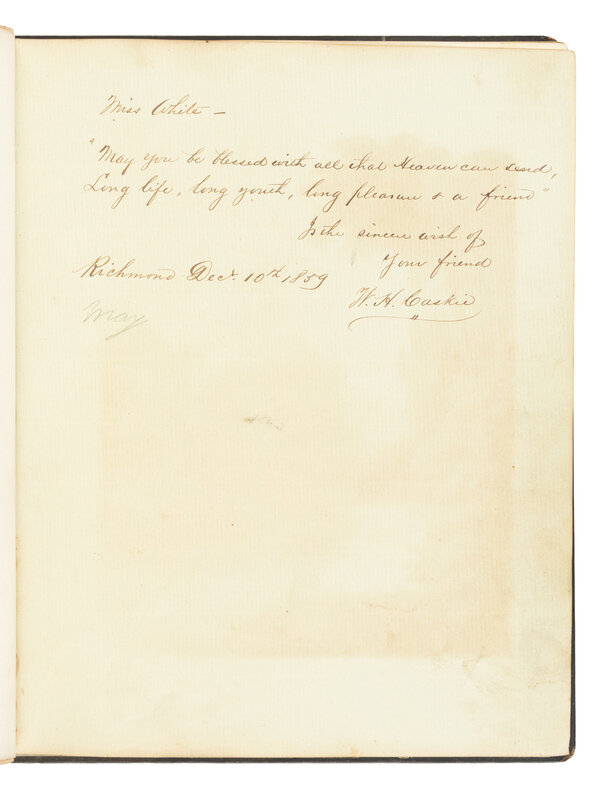 Miss White —
"May you be blessed with all that Heaven can send,
Long life, long youth, long pleasure & a friend"
Is the sincere wish of
Your friend
Richmond Decr. 10th 1859
W. H. Caskie
May